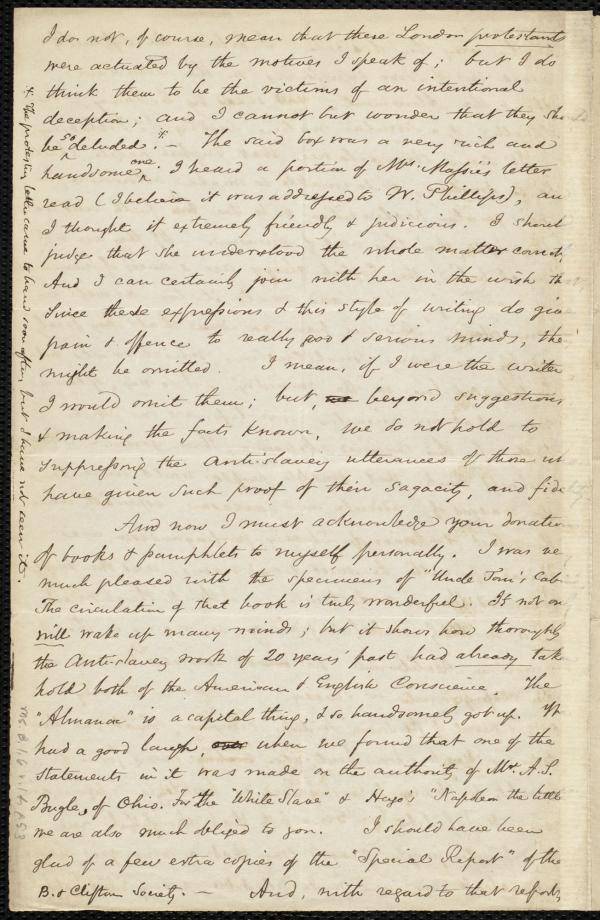 I do not, of course, mean that these London protestants
were actuated by the motives I speak of; but I do
think them to be the victims of an intentional
deception; and I cannot but wonder that they sho
be so deluded.* – The said box was a very rich and
handsome one. I heard a portion of Mrs. Massie's letter
read (I believe it was addressed to W. Phillips), an
I thought it extremely friendly & judicious. I should
judge that she understood the whole matter correctly
And I can certainly join with her in the wish th
since these expressions & this style of writing do give
pain & offence to really good & serious minds, the
might be omitted. I mean, if I were the writer
I would omit them; but, beyond suggestions
& making the facts known, we do not hold to
suppressing the Antislavery utterances of those w
have given such proof of their sagacity, and fide
And now I must acknowledge your donation
of books & pamphlets to myself personally. I was ve
much pleased with the specimens of "Uncle Tom's Cab
The circulation of that book is truly wonderful. It not on
will wake up many minds; but it shows how thoroughly
the Antislavery work of 20 years' past had already tak
hold both of the American & English Conscience. The
"Almanac" is a capital thing, & so handsomely got up. We
had a good laugh, when we found that one of the
statements in it was made on the authority of Mr. A. S.
Bugle, of Ohio. For the "White Slave" & Hugo's "Napoleon the little
we are also much obliged to you. I should have been
glad of a few extra copies of the "Special Report" of the
B. & Clifton Society. – And, with regard to that report,
* The protesting letter came to hand soon after, but I have not seen it.